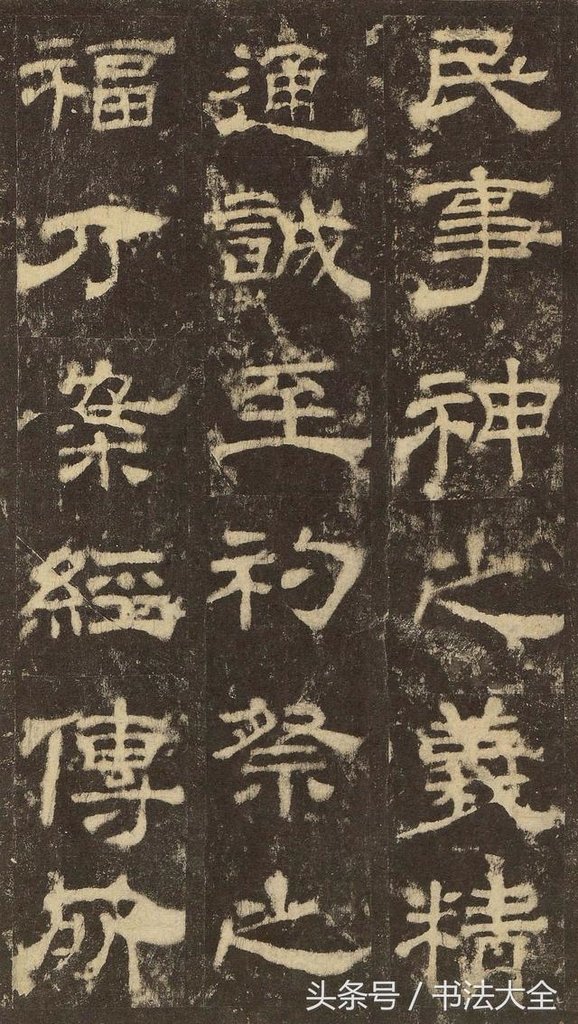 民事神之義精
通誠至礿祭之
福乃案經傳所
头条号 / 书法大全